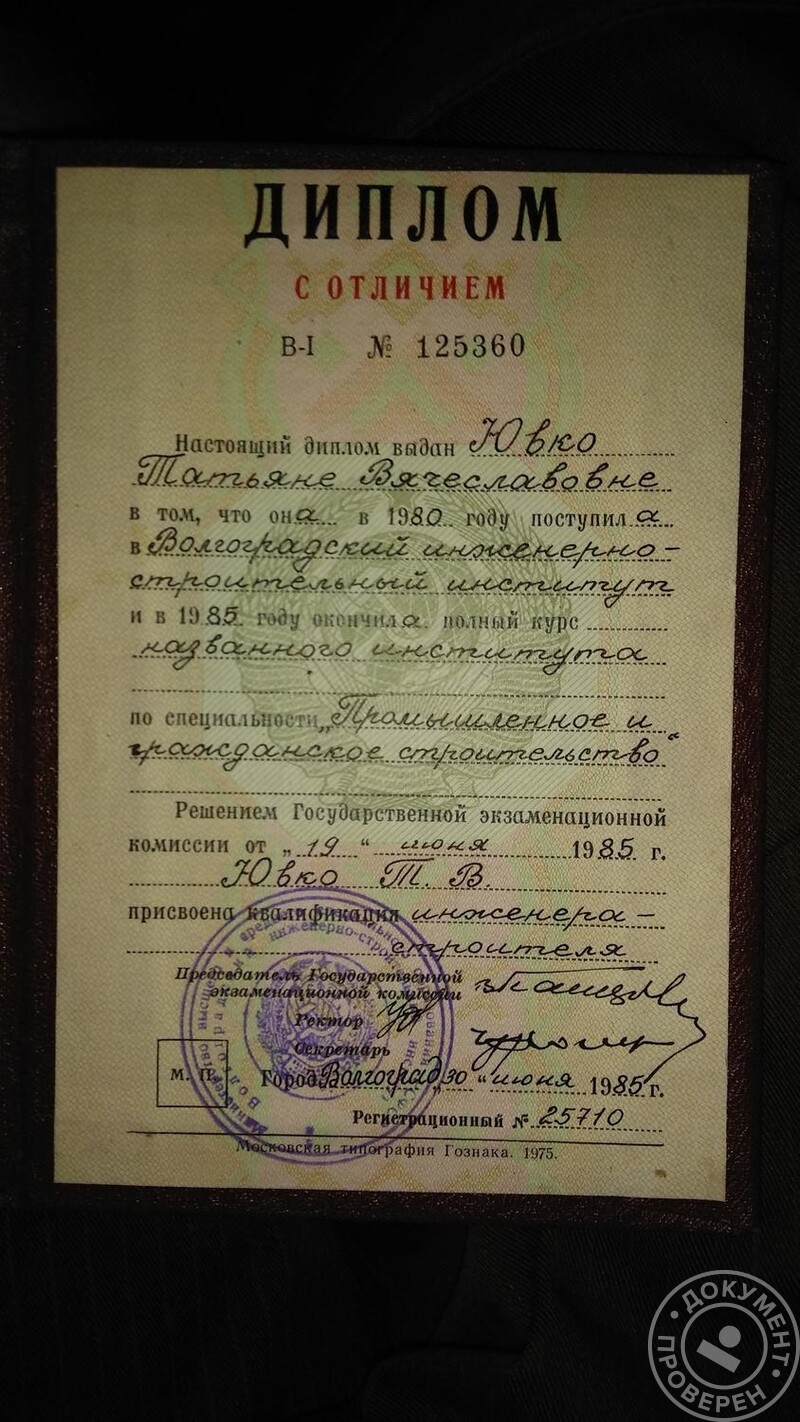 ДИПЛОМ
С ОТЛИЧИЕМ
В-I № 125360
Настоящий диплом выдан Ювко
Татьяне Вячеславовне
в том, что она в 1980 году поступила
в Волгоградский инженерно-
строительный институт
и в 1985 году окончила полный курс
названного института
по специальности „Промышленное и
гражданское строительство“
Решением Государственной экзаменационной
комиссии от „19“ июня 1985 г.
Ювко Т. В.
присвоена квалификация инженера-
строителя
Председатель Государственной
экзаменационной комиссии
Ректор
Секретарь
М. П. Город Волгоград „30“ июня 1985 г.
Регистрационный № 25710
Московская типография Гознака. 1975.
ДОКУМЕНТ
ПРОВЕРЕН